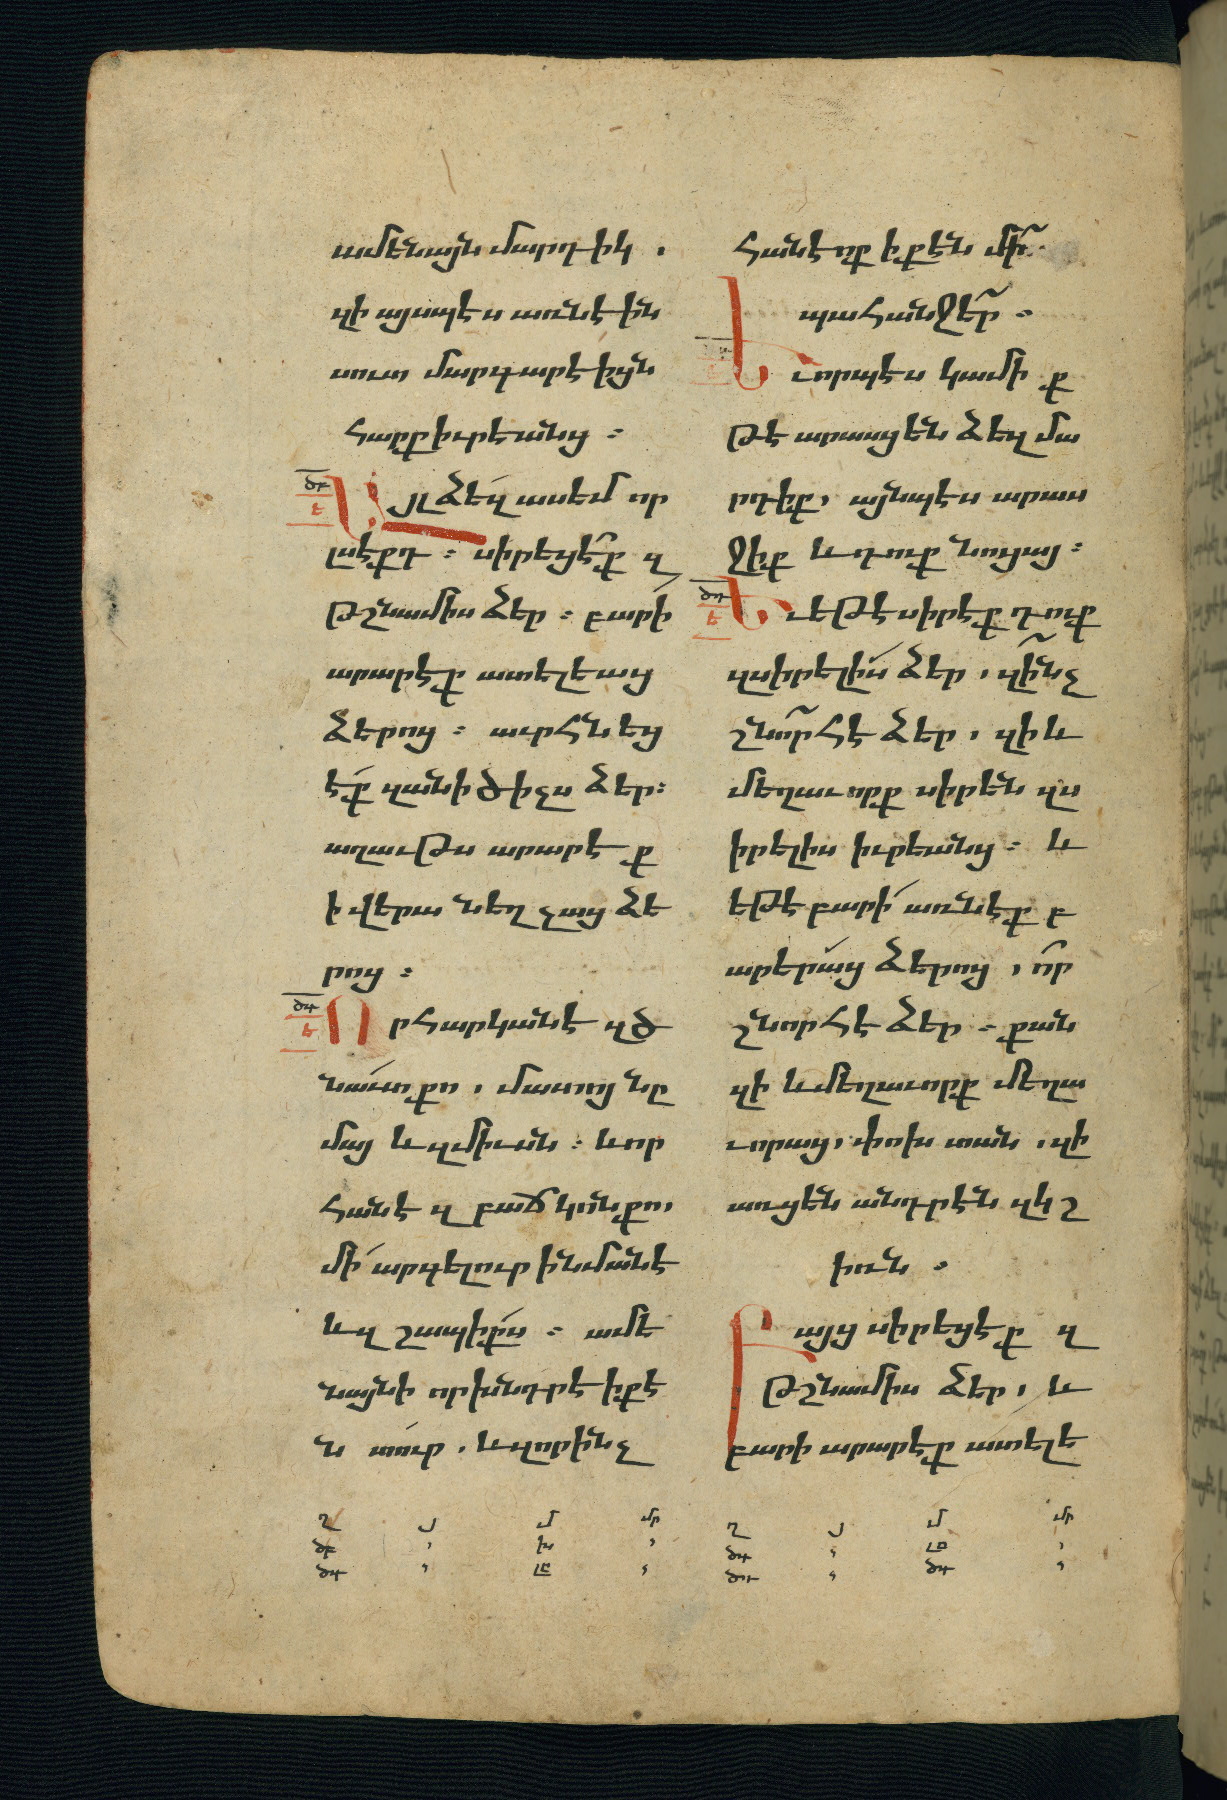 ամենայն մարդիկ .
զի այսպէս առնէին
սուտ մարգարէիցն
հարքիւրեանց ։
ծբ
ե
Այլ ձեզ ասեմ որ
լսէքդ ։ սիրեցէք զ
թշնամիս ձեր ։ բարի
արարէք ատելեաց
ձերոց ։ աւրհնեց
էք զանիծիչս ձեր։
աղաւթս արարէ ք
ի վերա նեղչաց ձե
րոց ։
ծգ
ե
Որ հարկանէ զծ
նաւտ քո , մատոյ նը
մայ և զմիւսն ։ և որ
հանէ զ բաճկոնքո,
մի արգելուր ինմանէ
և զ շապիքս ։ ամե
նայնի որ խնդրէ իքէ
ն տուր . և զոր ինչ
հանէ ոք ի քէն մի .
պահանջեր ։
Եւ որպէս կամի ք
թէ արասցեն ձեզ մա
րդիք, այնպէս արաս
ջիք և դուք նոցայ ։
ծդ
ե
Եւ եթէ սիրէք դուք
զսիրելիս ձեր , զինչ
շնորհ է ձեր , զի և
մեղաւորք սիրեն զս
իրելիս իւրեանց ։ և
եթէ բարի առնէք բ
արերաց ձերոց , որ
շնորհ է ձեր ։ քան
զի և մեղաւորք մեղա
ւորաց, փոխ տան , զի
առցեն անդրէն զկշ
իռն ։
Բայց սիրեցէք զ
թշնամիս ձեր , և
բարի արարէք ատելե
ղ յ մ մր
ծբ , խ ,
ծգ , լը ,
ղ յ մ մր
ծգ , լը ,
ծդ , ծգ ,